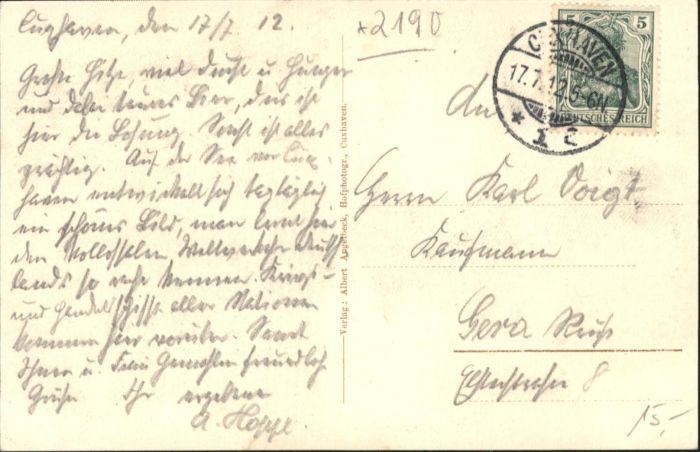 Cuxhaven, den 17/7 12.
Große Hitze, viel Durst u Hunger
und dabei teures Bier, das ist
hier die Losung. Sonst ist alles
prächtig. Auf der See vor Cux-
haven entwickelt sich tagtäglich
ein schönes Bild, man lernt hier
den kollossalen Weltverkehr Deutsch
lands so recht kennen. Kriegs-
und Handelsschiffe aller Nationen
kommen hier vorüber. Sendet
Ihnen u. Frau Gemahlin freundlich
Grüße Ihr ergebener
A. Hoppe.
Verlag: Albert Angelbeck, Hofphotogr., Cuxhaven.
*2190
5 5
DEUTSCHES REICH
CUXHAVEN
17.7.12.5-6N
* 1 c
An
Herrn Karl Voigt,
Kaufmann
Gera Reuß
8
15,-